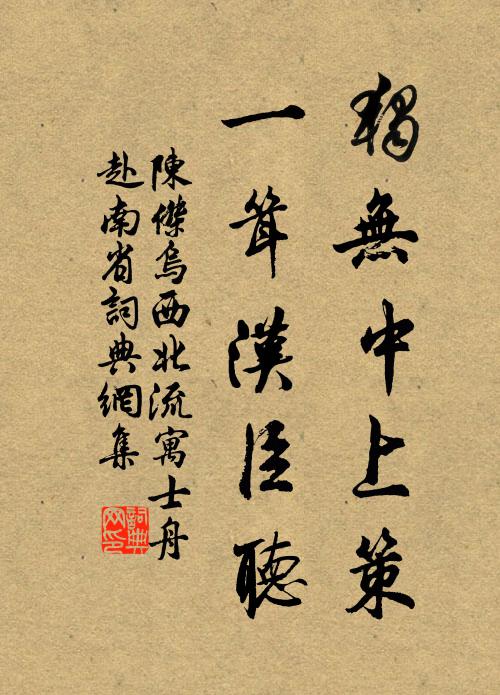 獨無中上策
一耸漢臣聽
陳傑烏西北流寓士舟
赴南省詞典網集
詞典
网印